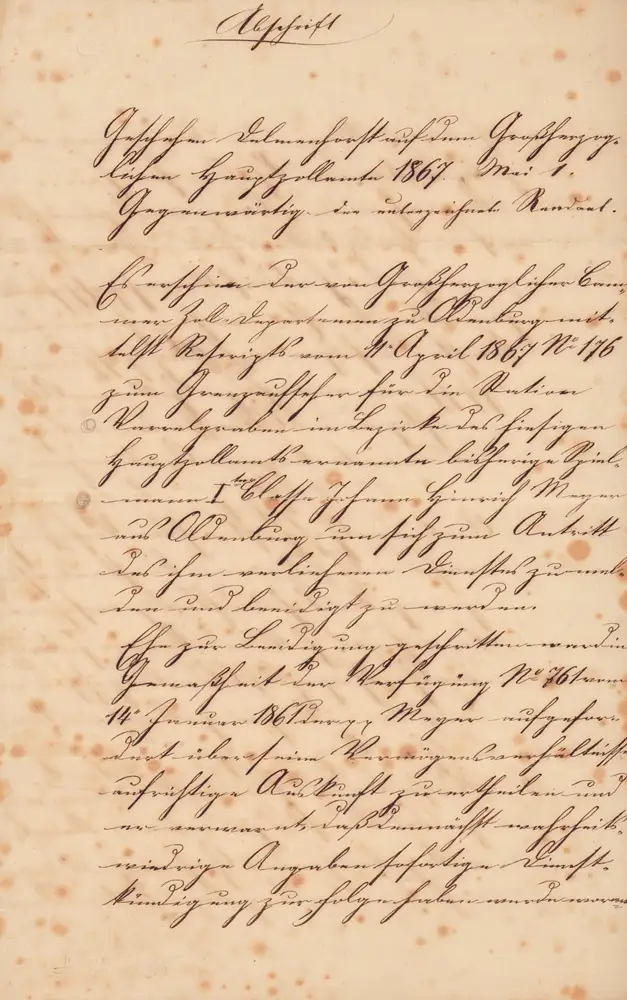 Abschrift
Geschehen Delmenhorst auf dem Großherzog-
lichen Hauptzollamte 1867. Mai 1.
Gegenwärtig: der unterzeichnete Rendant.
Es erschien der von Großherzoglicher Cam-
mer Zoll-Departemen zu Oldenburg mit-
telst Rescripts vom 4. April 1867 No 176
zum Grenzaufseher für die Station
Varrelgraben im Bezirke des hiesigen
Hauptzollamts ernannte bisherige Spiel-
mann Iter Classe Johann Hinrich Meyer
aus Oldenburg um sich zum Antritt
des ihm verliehenen Dienstes zu mel-
den und beeidigt zu werden.
Ehe zur Beeidigung geschritten ward in
Gemäßheit der Verfügung No 761 vom
14. Januar 1861 der pp Meyer aufgefor-
dert über seine Vermögensverhältnisse
aufrichtige Auskunft zu ertheilen und
er verwarnt, daß demnächst wahrheits-
wiedrige Angaben sofortige Dienst-
kündigung zur Folge haben werde, worauf